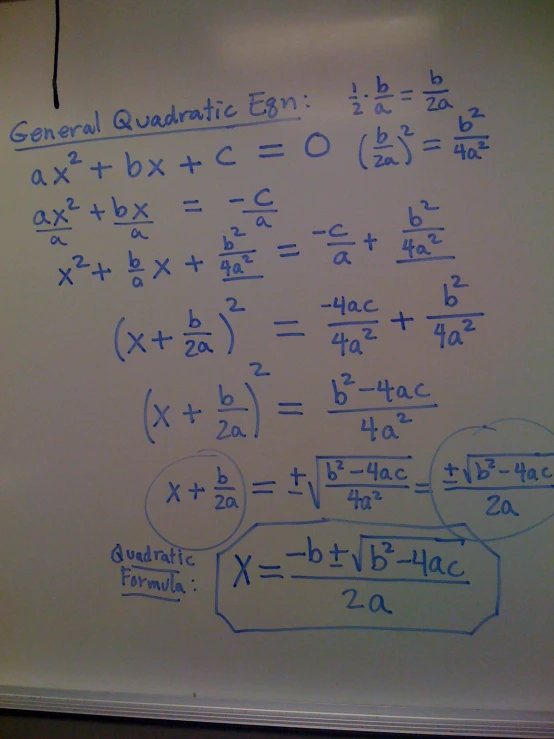 General Quadratic Eqn: 1/2 · b/a = b/2a
ax² + bx + c = 0 (b/2a)² = b²/4a²
ax²/a + bx/a = -c/a
x² + b/a x + b²/4a² = -c/a + b²/4a²
(x + b/2a)² = -4ac/4a² + b²/4a²
(x + b/2a)² = b²-4ac/4a²
x + b/2a = ±√(b²-4ac/4a²) = ±√(b²-4ac)/2a
Quadratic
Formula: x = -b±√(b²-4ac)/2a